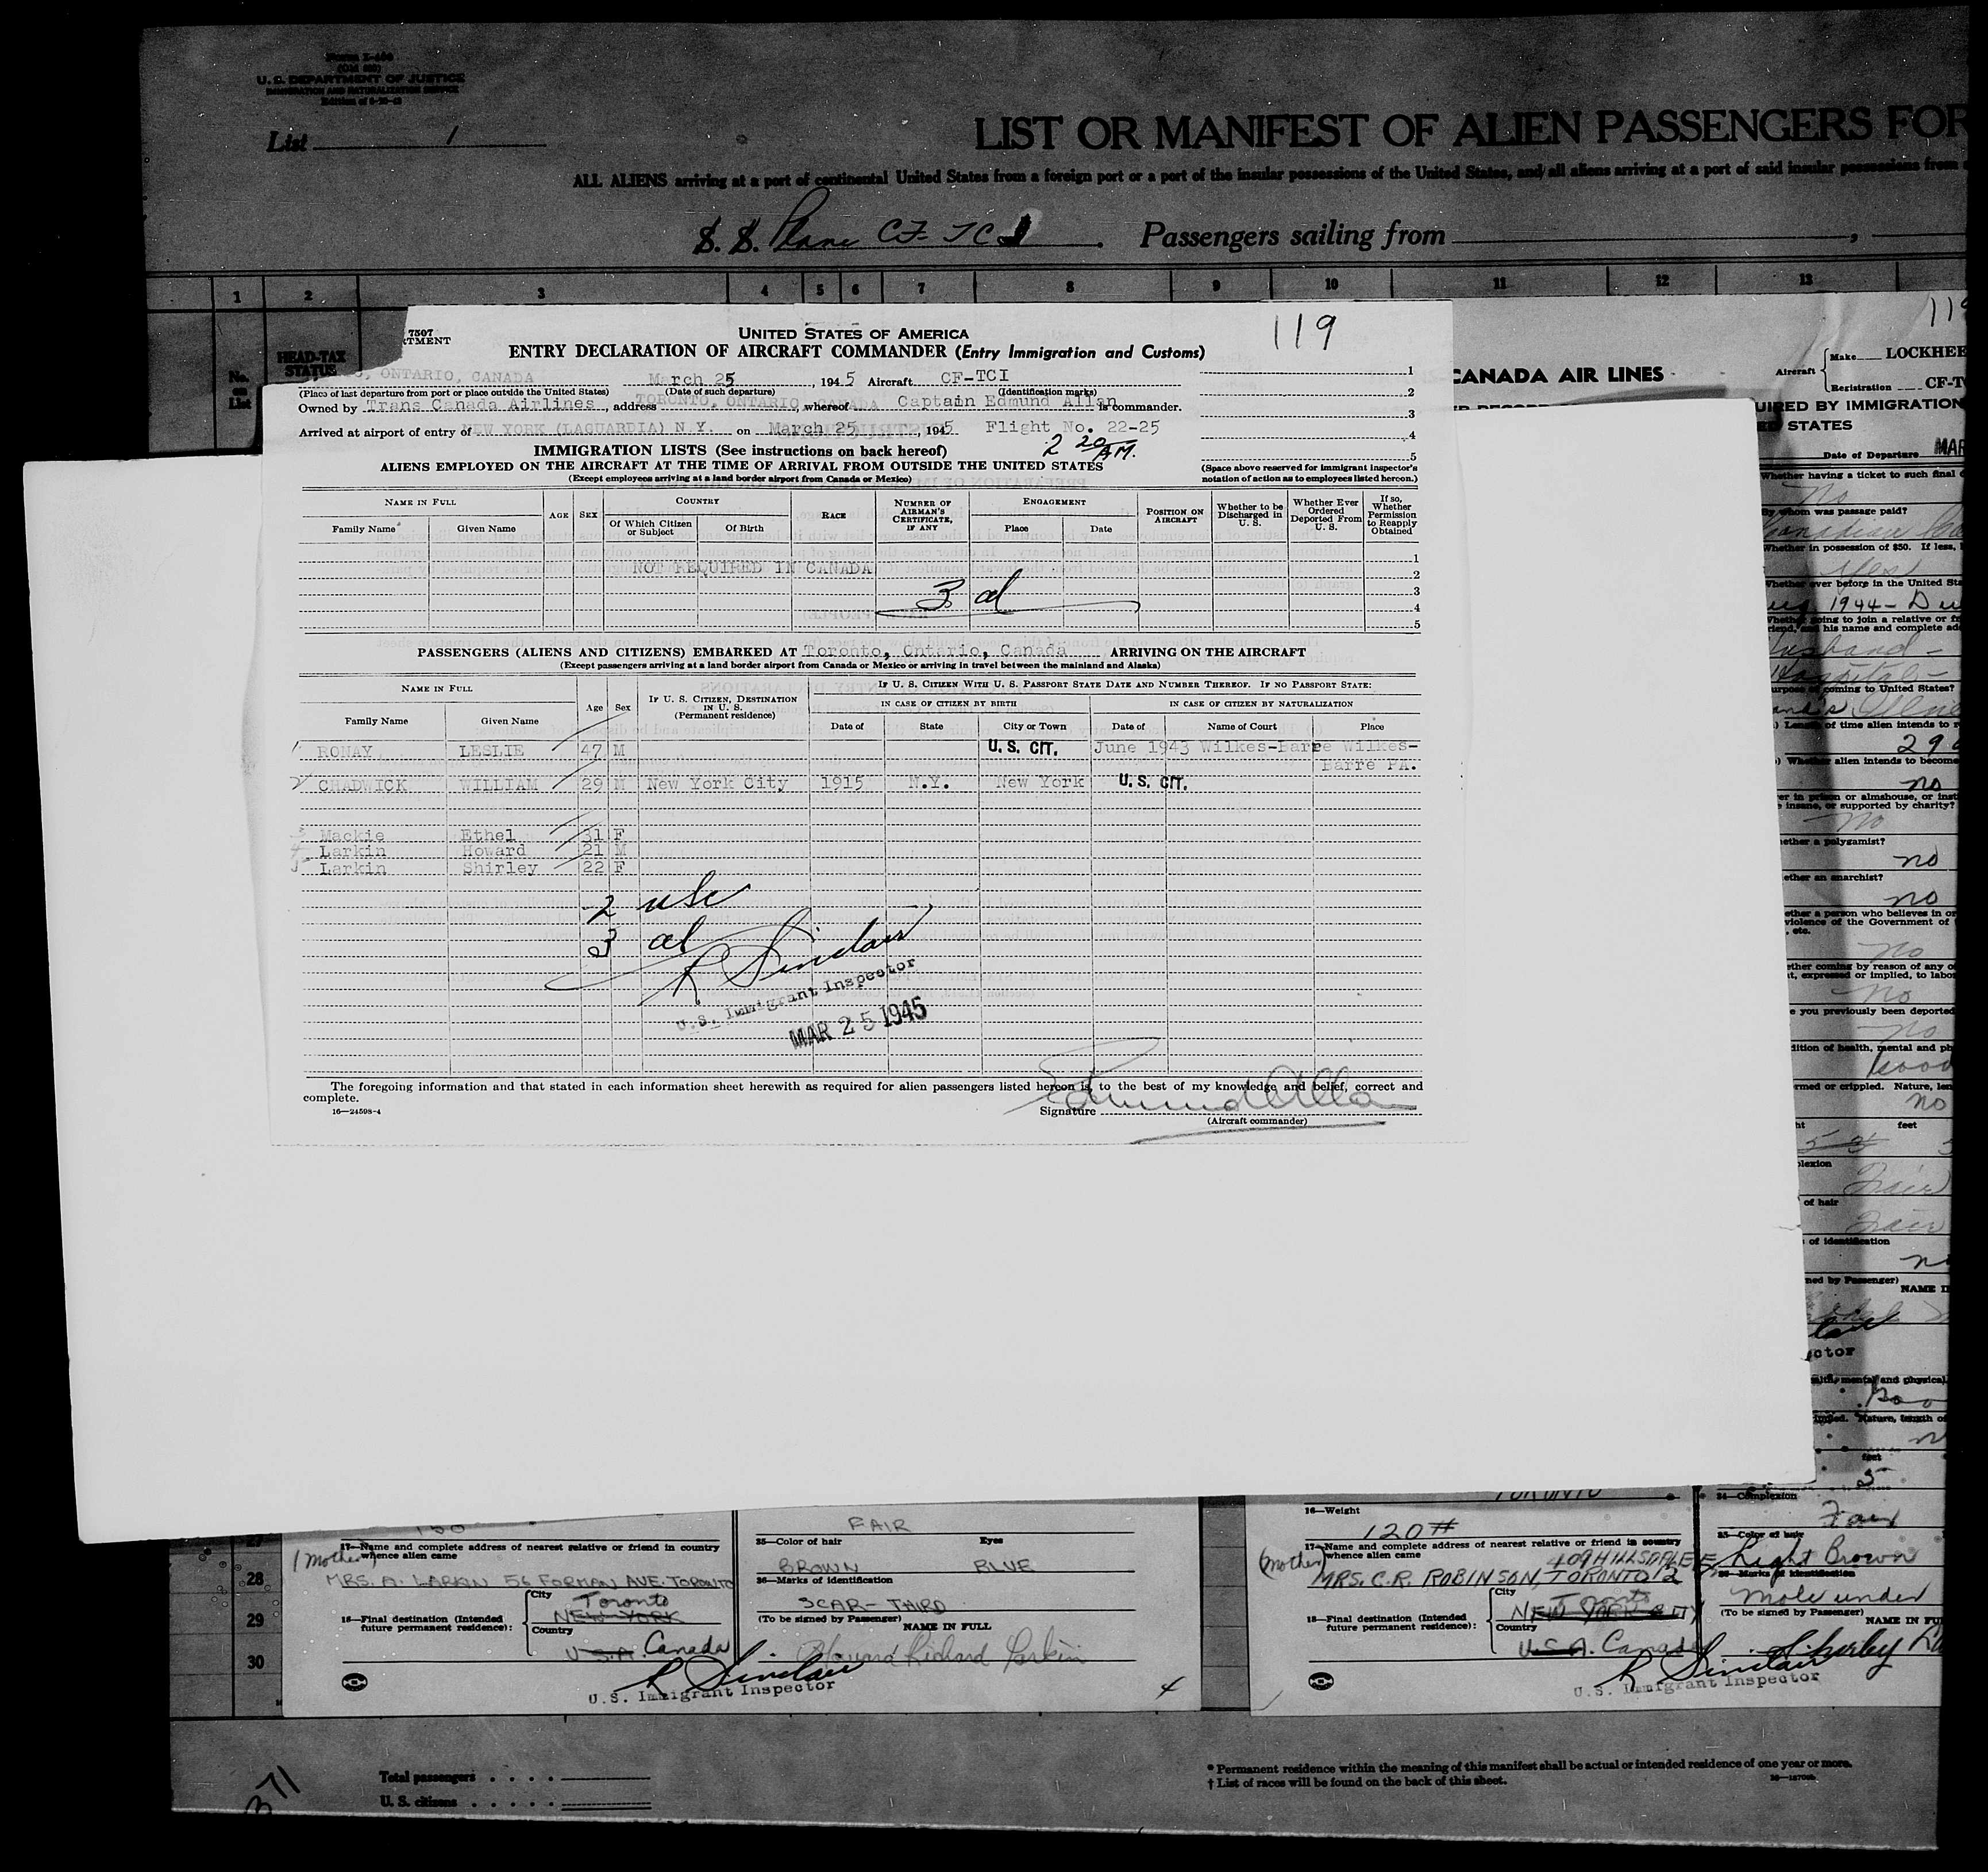 Form I-466
U. S. DEPARTMENT OF JUSTICE
IMMIGRATION AND NATURALIZATION SERVICE
List 1
LIST OR MANIFEST OF ALIEN PASSENGERS FOR
ALL ALIENS arriving at a port of continental United States from a foreign port or a port of the insular possessions of the United States, and all aliens arriving at a port of said insular possessions from a
S. S. Plane CF-TCI. Passengers sailing from
1 2 3 4 5 6 7 8 9 10 11 12 13
No. on List
HEAD-TAX STATUS
7507
TMENT
UNITED STATES OF AMERICA
119
ENTRY DECLARATION OF AIRCRAFT COMMANDER (Entry Immigration and Customs)
O, ONTARIO, CANADA March 25, 1945 Aircraft CF-TCI
(Place of last departure from port or place outside the United States) (Date of such departure) (Identification marks)
Owned by Trans Canada Airlines, address TORONTO, ONTARIO, CANADA whereof Captain Edmund Allan is commander.
Arrived at airport of entry of NEW YORK (LAGUARDIA) N.Y. on March 25, 1945 Flight No. 22-25
2 20 AM.
1
2
3
4
5
(Space above reserved for immigrant inspector's
notation of action as to employees listed hereon.)
IMMIGRATION LISTS (See instructions on back hereof)
ALIENS EMPLOYED ON THE AIRCRAFT AT THE TIME OF ARRIVAL FROM OUTSIDE THE UNITED STATES
(Except employees arriving at a land border airport from Canada or Mexico)
NAME IN FULL
Family Name Given Name
AGE SEX
COUNTRY
Of Which Citizen or Subject Of Birth
RACE
NUMBER OF AIRMAN'S CERTIFICATE, IF ANY
ENGAGEMENT
Place Date
POSITION ON AIRCRAFT
Whether to be Discharged in U. S.
Whether Ever Ordered Deported From U. S.
If so, Whether Permission to Reapply Obtained
1
NOT REQUIRED IN CANADA 2
3
3 al 4
5
PASSENGERS (ALIENS AND CITIZENS) EMBARKED AT Toronto, Ontario, Canada ARRIVING ON THE AIRCRAFT
(Except passengers arriving at a land border airport from Canada or Mexico or arriving in travel between the mainland and Alaska)
NAME IN FULL
Family Name Given Name
Age Sex
IF U. S. CITIZEN, DESTINATION IN U. S. (Permanent residence)
IF U. S. CITIZEN WITH U. S. PASSPORT STATE DATE AND NUMBER THEREOF. IF NO PASSPORT STATE:
IN CASE OF CITIZEN BY BIRTH IN CASE OF CITIZEN BY NATURALIZATION
Date of State City or Town Date of Name of Court Place
1 RONAY LESLIE 47 M U. S. CIT. June 1943 Wilkes-Barre Wilkes-
Barre PA.
2 CHADWICK WILLIAM 29 M New York City 1915 N.Y. New York U. S. CIT.
3 Mackie Ethel 31 F
4 Larkin Howard 21 M
5 Larkin Shirley 22 F
2 usc
3 al
R Sinclair
U.S. Immigrant Inspector
MAR 25 1945
The foregoing information and that stated in each information sheet herewith as required for alien passengers listed hereon is, to the best of my knowledge and belief, correct and
complete.
16—24598-4
Signature Edmund Allan
(Aircraft commander)
119
CANADA AIR LINES
Aircraft
Make LOCKHEE
Registration CF-T
UIRED BY IMMIGRATION
ED STATES
Date of Departure MAR
Whether having a ticket to such final d
No
By whom was passage paid?
Canadian
Whether in possession of $50. If less,
Yes
Whether ever before in the United Sta
Aug 1944 -
Whether going to join a relative or fr
riend, and his name and complete ad
Husband -
Hospital -
urpose of coming to United States?
) Length of time alien intends to r
29
) Whether alien intends to become
no
er in prison or almshouse, or inst
e insane, or supported by charity?
No
hether a polygamist?
no
ether an anarchist?
no
ether a person who believes in or
violence of the Government of
, etc.
no
ether coming by reason of any o
t, expressed or implied, to labo
No
e you previously been deported
no
dition of health, mental and ph
Good
rmed or crippled. Nature, len
no
ht feet
5
plexion
Fair
of hair
Fair
of identification
ned by Passenger) NAME I
ctor
alth, mental and physical
Goo
rippled. Nature, length of
feet
5
24—Complexion
Fair
25—Color of hair
Light Brown
26—Marks of identification
Mole under
(To be signed by Passenger) NAME IN FU
Shirley La
27
28
29
30
150
17—Name and complete address of nearest relative or friend in country
whence alien came
(Mother)
MRS. A. LARKIN 56 FORMAN AVE. TORONTO
18—Final destination (Intended
future permanent residence):
City
Toronto
NEW YORK
Country
U.S.A. Canada
R Sinclair
U.S. Immigrant Inspector
FAIR
25—Color of hair Eyes
BROWN BLUE
26—Marks of identification
SCAR - THIRD
(To be signed by Passenger)
NAME IN FULL
Howard Richard Larkin
4
TORONTO
16—Weight
120 #
17—Name and complete address of nearest relative or friend in country
whence alien came
(Mother)
409 HILLSDALE E
MRS. C.R. ROBINSON, TORONTO 12
18—Final destination (Intended
future permanent residence):
City
Toronto
NEW YORK CITY
Country
U.S.A. Canada
R Sinclair
U.S. Immigrant Inspector
371
Total passengers
U. S. citizens
* Permanent residence within the meaning of this manifest shall be actual or intended residence of one year or more.
† List of races will be found on the back of this sheet.